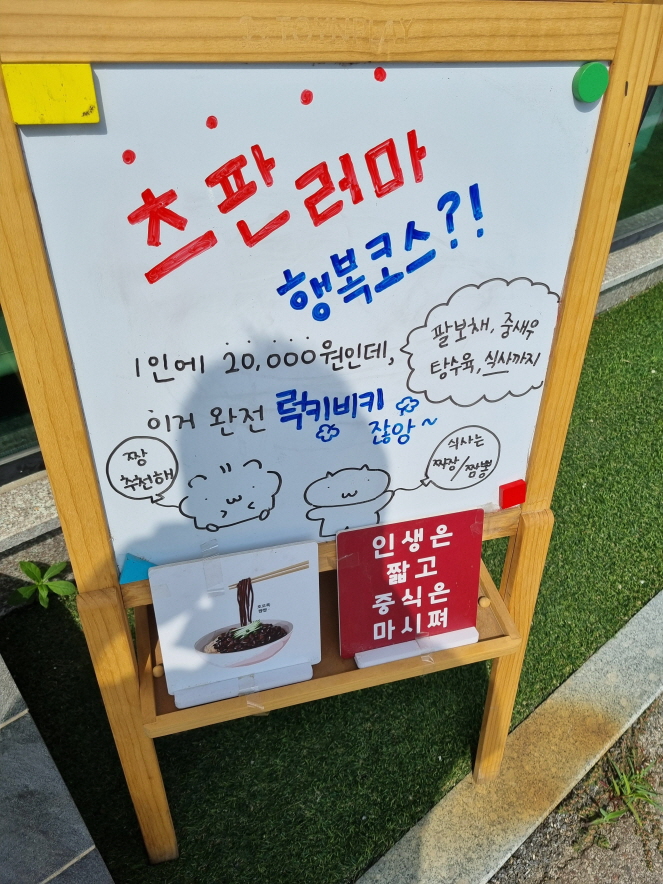 TOWNPLAY
츠판러마
행복코스?!
1인에 20,000원인데,
팔보채, 중새우
탕수육, 식사까지
이거 완전 럭키비키
잖앙~
짱
추천해
식사는
짜장/짬뽕
인생은
짧고
중식은
마시쪄